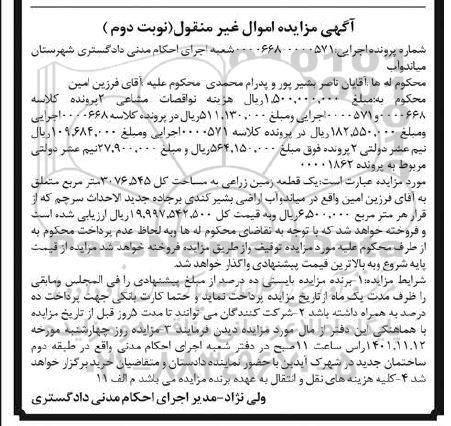 آگهی مزایده اموال غیر منقول(نوبت دوم )
شماره پرونده اجرایی:۰۰۰۰۵۷۱-۰۰۰۰۶۶۸شعبه اجرای احکام مدنی دادگستری شهرستان
میاندوآب
محکوم له ها :آقایان ناصر بشیر پور و پدرام محمدی محکوم علیه :آقای فرزین امین
محکوم به:مبلغ ۱,۵۰۰,۰۰۰,۰۰۰ریال هزینه نواقصات مشاعی ۲پرونده کلاسه
۰۰۰۰۶۶۸و۰۰۰۰۵۷۱اجرایی ومبلغ ۵۱۱,۱۳۰,۰۰۰ریال در پرونده کلاسه ۰۰۰۰۶۶۸اجرایی
ومبلغ ۱۸۲,۵۵۰,۰۰۰ریال در پرونده کلاسه ۰۰۰۰۵۷۱اجرایی ومبلغ ۱۰۹,۶۸۴,۰۰۰ریال
نیم عشر دولتی ۲پرونده فوق مبلغ ۵۶۴,۱۵۰,۰۰۰ریال و مبلغ ۲۷,۹۰۰,۰۰۰نیم عشر دولتی
مربوط به پرونده ۰۰۰۰۱۸۶۲
مورد مزایده عبارت است:یک قطعه زمین زراعی به مساحت کل ۳۰۷۶,۵۴۵متر مربع متعلق
به آقای فرزین امین واقع در میاندوآب اراضی بشیر کندی برجاده جدید الاحداث سرچم که از
قرار هر متر مربع ۶,۵۰۰,۰۰۰ ریال وبه قیمت کل ۱۹,۹۹۷,۵۴۲,۵۰۰ ریال ارزیابی شده است
و فروخته خواهد شد که با توجه به تقاضای محکوم له ها وبه لحاظ عدم پرداخت محکوم به
از طرف محکوم علیه مورد مزایده توقیف واز طریق مزایده فروخته خواهد شد مزایده از قیمت
پایه شروع وبه بالاترین قیمت پیشنهادی واگذار خواهد شد.
شرایط مزایده:۱- برنده مزایده بایستی ده درصد از مبلغ پیشنهادی را فی المجلس ومابقی
را ظرف مدت یک ماه از تاریخ مزایده پرداخت نماید و حتما کارت بانکی جهت پرداخت ده
درصد به همراه داشته باشد ۲-شرکت کنندگان می توانند تا مدت ۵روز قبل از تاریخ مزایده
با هماهنگی این دفتر از مال مورد مزایده دیدن فرمایند ۳-مزایده روز چهارشنبه مورخه
۱۴۰۱,۱۱,۱۲راس ساعت ۱۱صبح در دفتر شعبه اجرای احکام مدنی واقع در طبقه دوم
ساختمان جدید در شهرک آیدین با حضور نماینده دادستان و متقاضیان خرید برگزار خواهد
شد ۴-کلیه هزینه های نقل و انتقال به عهده برنده مزایده می باشد م الف ۱۱
ولی نژاد-مدیر اجرای احکام مدنی دادگستری